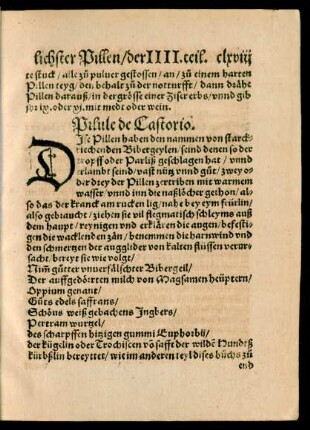 lichster Pillen/der IIII. teil. clxviij
te stuck/alle zů puluer gestossen/an/zů einem harten
Pillen teyg/den behalt zů der notturfft/dann dråhe
Pillen darauß/in der grösse einer Ziser erbs/vnnd gib
jhr ix. oder xj. mit medt oder wein.
Pilule de Castorio.
DJse Pillen haben den nammen von starck
riechenden Bibergeylen/seind denen so der
tropff oder Parliß geschlagen hat/vnnd
erlambt seind/vast nütz vnnd gůt/zwey o-
der drey der Pillen zertriben mit warmem
wasser/vnnd inn die naßlöcher gethon/al-
so das der kranck am rucken lig/nahe bey eym frürlin/
also gebraucht/ziehen sie vil flegmatisch schleyms auß
dem haupt/reynigen vnd erklären die augen/befesti-
gen die wacklenden zån/benemmen die harnwind vnd
den schmertzen der augglider von kalten flüssen verur-
sacht/bereyt sie wie volgt/
Nim̃ gůtter vnuerfälschter Bibergeil/
Der auffgedörrten milch von Magsamen heüptern/
Oppium genant/
Gůts edels saffrans/
Schöns weiß gebachens Ingbers/
Pertram wurtzel/
des scharpffen hitzigen gummi Euphorbij/
der kügelin oder Trochiscen võ safft der wildẽ Hundß
kürbßlin bereyttet/wie im anderen teyl dises bůchs zů
end